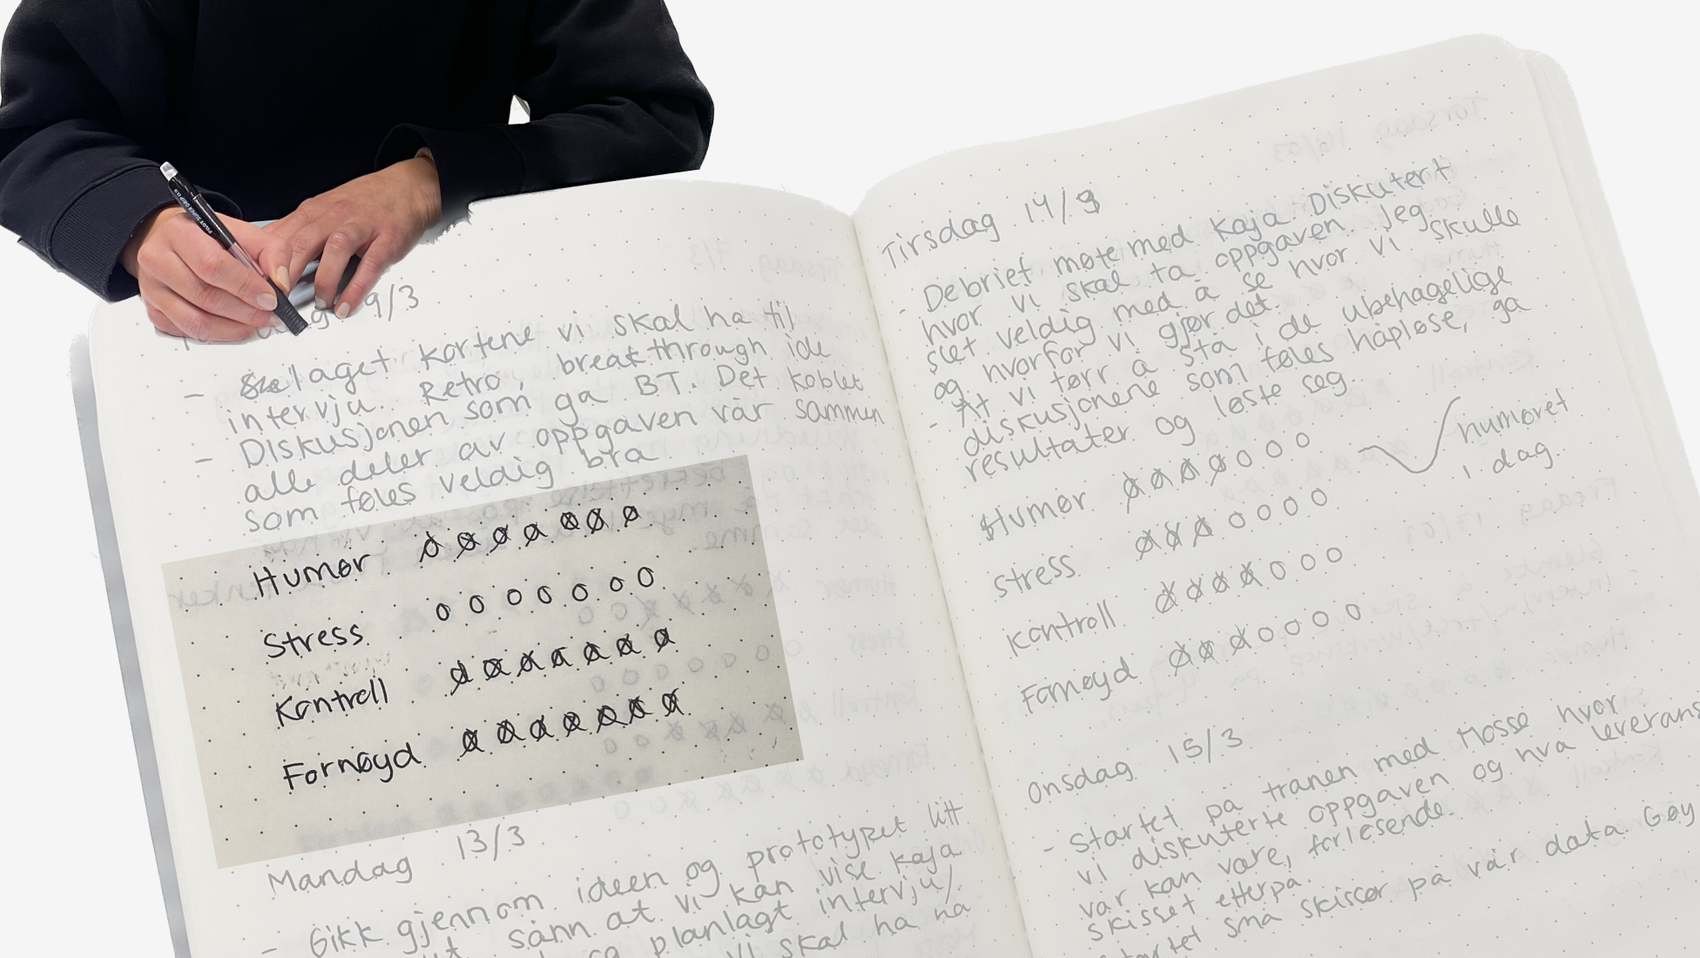 9/3
- laget kortene vi skal ha til
intervju. Retro, breakthrough ide
- Diskusjonen som ga BT. Det koblet
alle deler av oppgaven vår sammen
som føles veldig bra
Humør ø ø ø ø ø ø ø
Stress o o o o o o o
Kontroll ø ø ø ø ø ø ø
Fornøyd ø ø ø ø ø ø ø
Mandag 13/3
- Gikk gjennom ideen og prototypet litt
sånn at vi kan vise kaja
planlagt intervju/
vi skal ha nå
Tirsdag 14/3
- Debrief møte med Kaja. Diskutert
hvor vi skal ta oppgaven. Jeg
slet veldig med å se hvor vi skulle
og hvorfor vi gjør det.
- At vi tørr å stå i de ubehagelige
diskusjonene som føles håpløse, ga
resultater og løste seg
Humør ø ø ø ø o o o
humøret
i dag.
Stress ø ø ø o o o o
Kontroll ø ø ø ø o o o
Fornøyd ø ø ø o o o o
Onsdag 15/3
- Startet på tranen med Mosse hvor
vi diskuterte oppgaven og hva leverans
vår kan være, forløsende.
skisset etterpå.
små skisser på vår data. Gøy